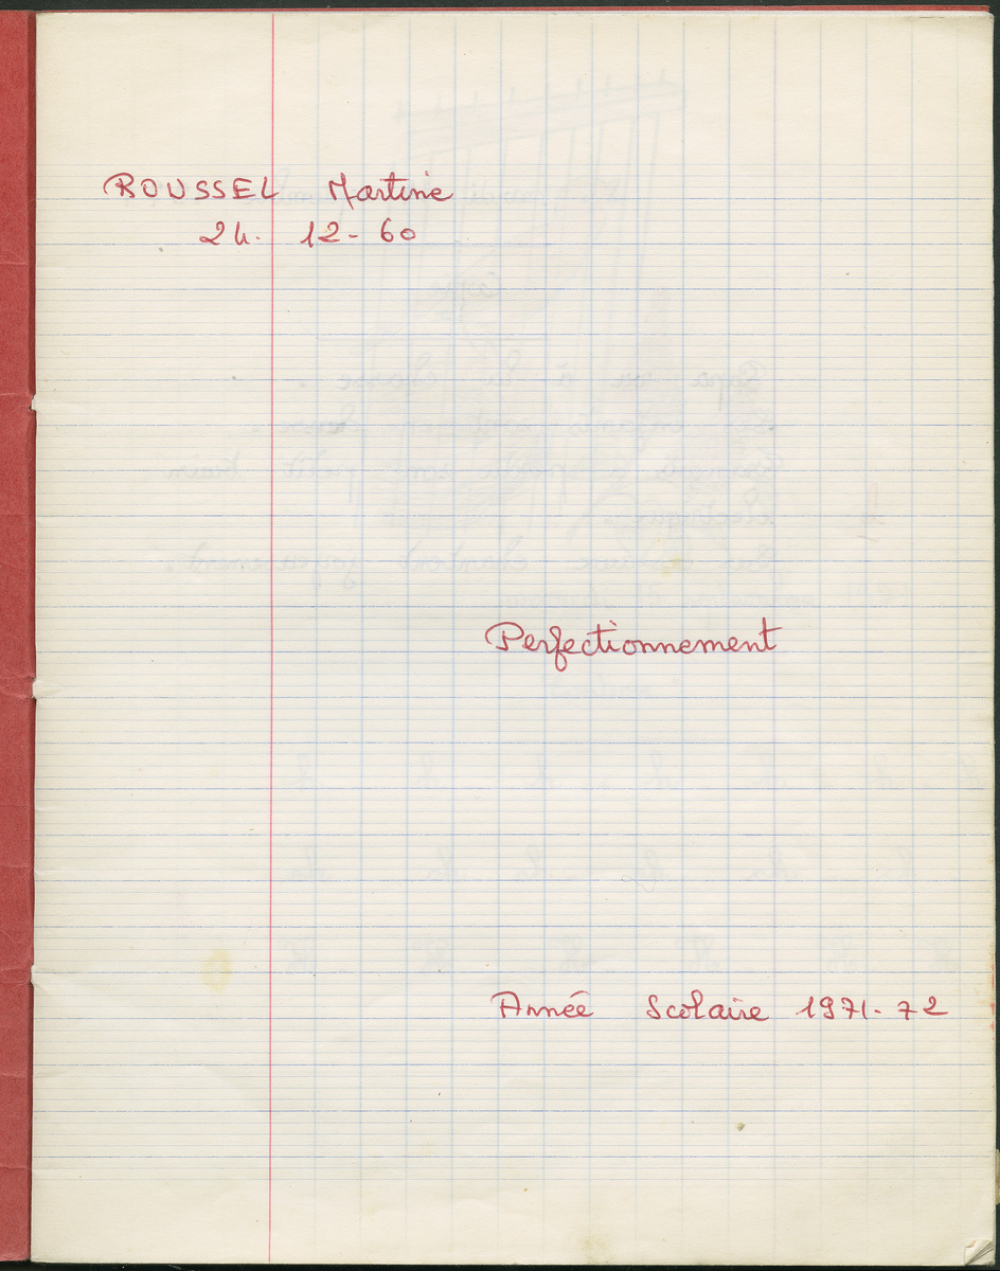 ROUSSEL Martine
24. 12-60
Perfectionnement
Année Scolaire 1971-72